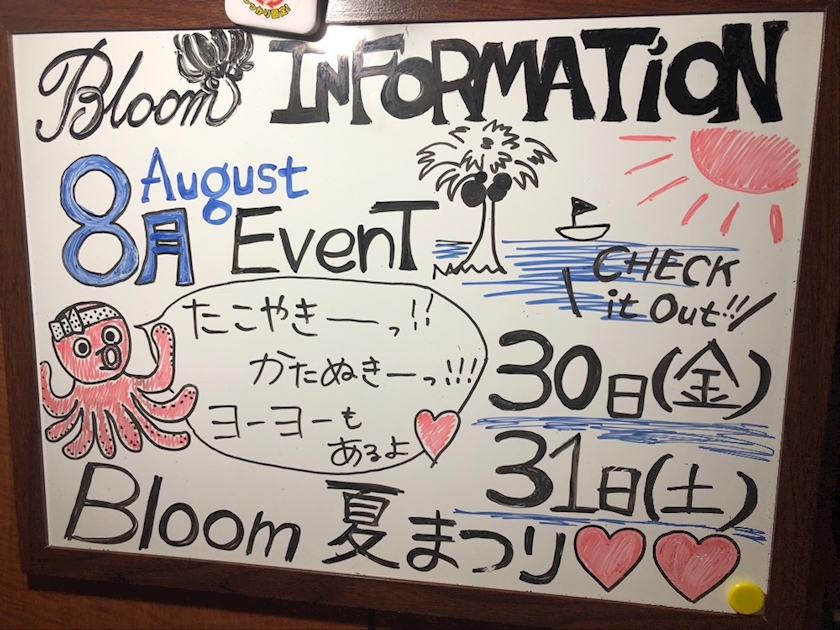 Bloom INFORMATiON
8月 August
EvenT
CHECK
it Out!!
たこやきーっ!!
かたぬきーっ!!!
ヨーヨーも
あるよ
30日(金)
31日(土)
Bloom 夏まつり